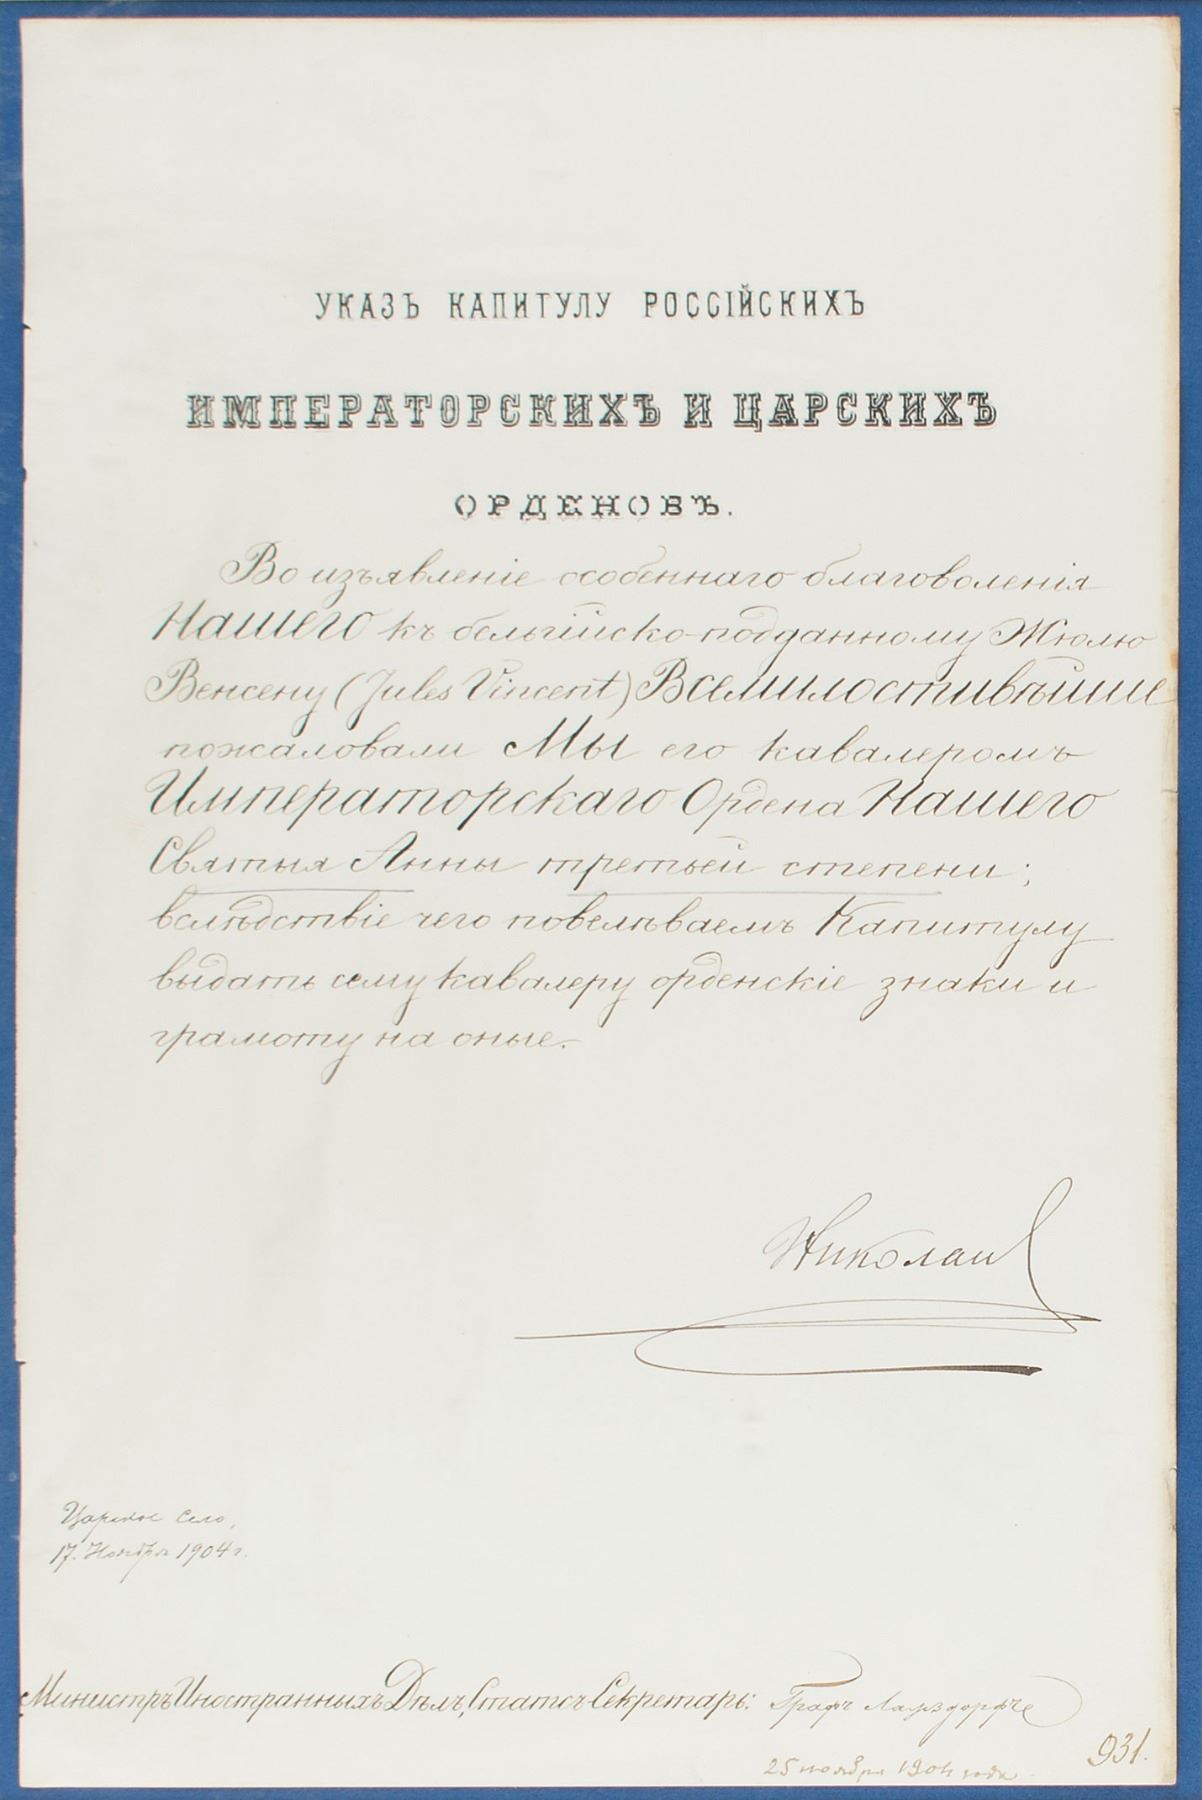 УКАЗЪ КАПИТУЛУ РОССІЙСКИХЪ
ИМПЕРАТОРСКИХЪ И ЦАРСКИХЪ
ОРДЕНОВЪ.
Во изъявленіе особеннаго благоволенія
Нашего къ бельгійско-подданному Жюлю
Венсену (Jules Vincent) Всемилостивѣйше
пожаловали Мы его кавалеромъ
Императорскаго Ордена Нашего
Святыя Анны третьей степени;
вслѣдствіе чего повелѣваемъ Капитулу
выдать сему кавалеру орденскіе знаки и
грамоту на оные.
Николай
Царское Село,
17. Ноября 1904 г.
Министръ Иностранныхъ Дѣлъ, Статсъ Секретарь: Графъ Ламздорфъ
25 ноября 1904 года
931.